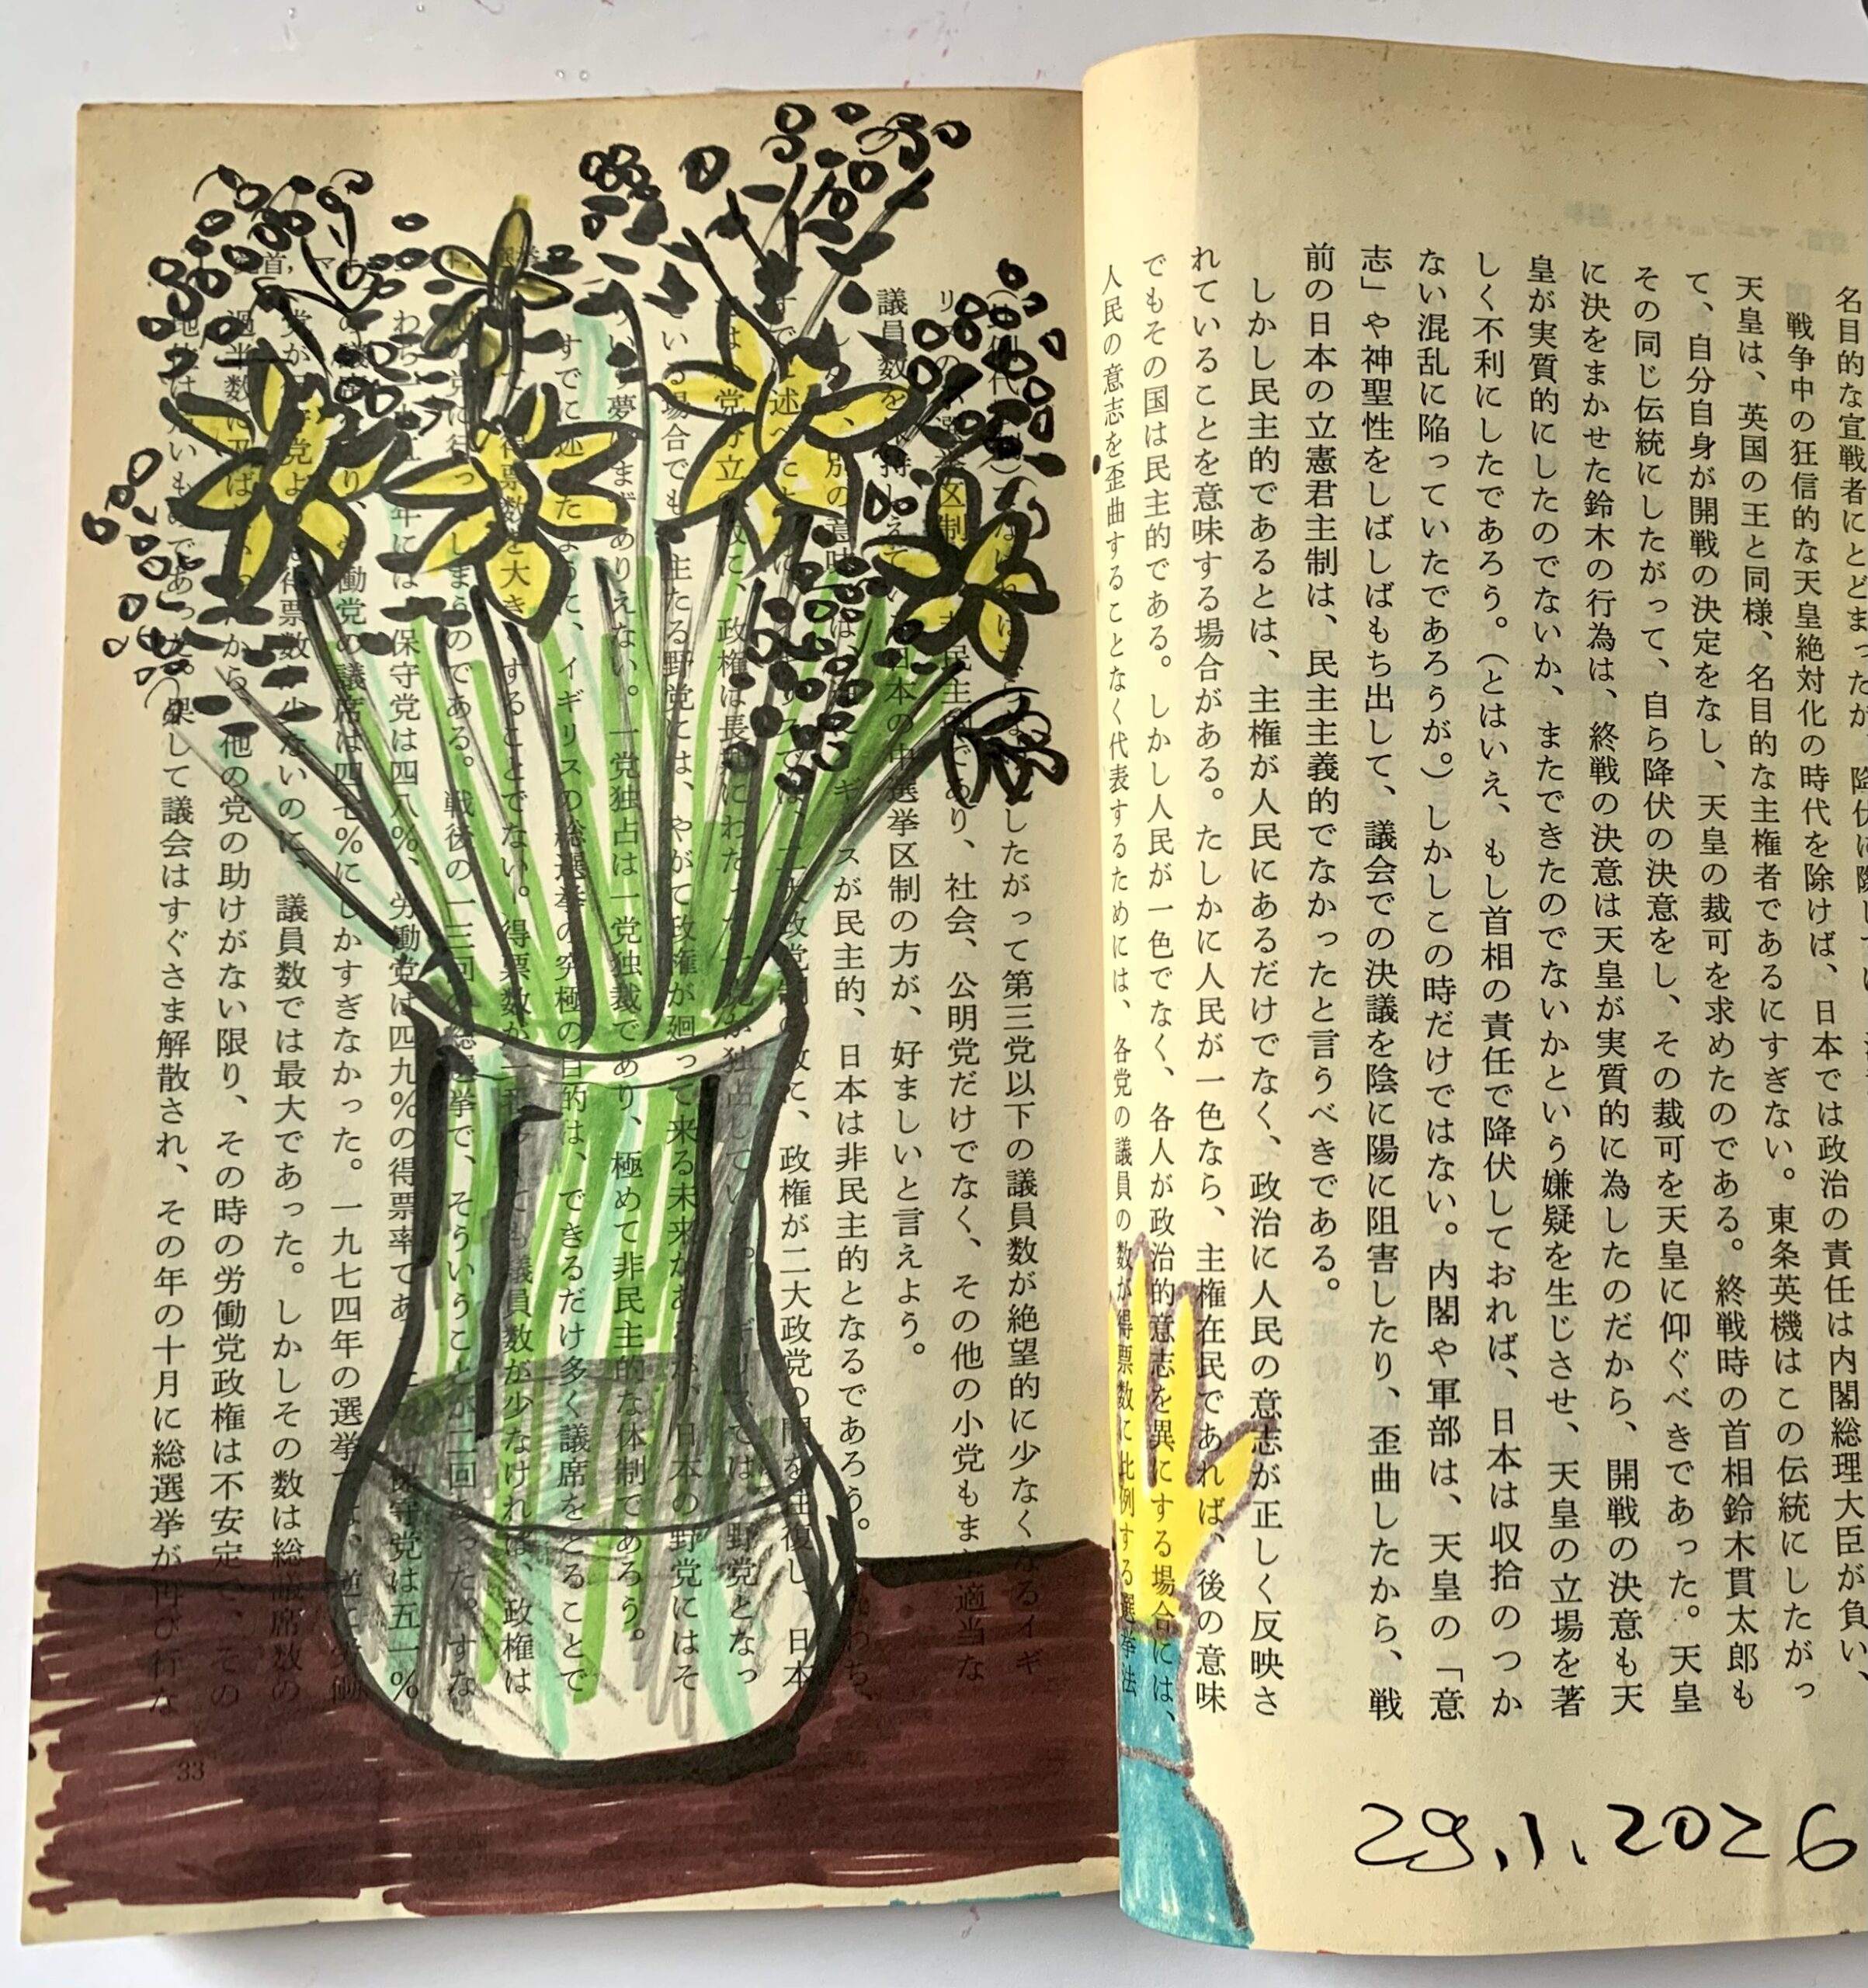 名目的な宣戦者にとどまったが、降伏に際しては
戦争中の狂信的な天皇絶対化の時代を除けば、日本では政治の責任は内閣総理大臣が負い、
天皇は、英国の王と同様、名目的な主権者であるにすぎない。東条英機はこの伝統にしたがっ
て、自分自身が開戦の決定をなし、天皇の裁可を求めたのである。終戦時の首相鈴木貫太郎も
その同じ伝統にしたがって、自ら降伏の決意をし、その裁可を天皇に仰ぐべきであった。天皇
に決をまかせた鈴木の行為は、終戦の決意は天皇が実質的に為したのだから、開戦の決意も天
皇が実質的にしたのでないか、またできたのでないかという嫌疑を生じさせ、天皇の立場を著
しく不利にしたであろう。(とはいえ、もし首相の責任で降伏しておれば、日本は収拾のつか
ない混乱に陥っていたであろうが。)しかしこの時だけではない。内閣や軍部は、天皇の「意
志」や神聖性をしばしばもち出して、議会での決議を陰に陽に阻害したり、歪曲したから、戦
前の日本の立憲君主制は、民主主義的でなかったと言うべきである。
しかし民主的であるとは、主権が人民にあるだけでなく、政治に人民の意志が正しく反映さ
れていることを意味する場合がある。たしかに人民が一色なら、主権在民であれば、後の意味
でもその国は民主的である。しかし人民が一色でなく、各人が政治的意志を異にする場合には、
人民の意志を歪曲することなく代表するためには、各党の議員の数が得票数に比例する選挙法
29.1.2026
したがって第三党以下の議員数が絶望的に少なくなるイギ
り、社会、公明党だけでなく、その他の小党もまた適当な
議員数を 日本の中選挙区制の方が、好ましいと言えよう。
別の意味では、 イギリスが民主的、日本は非民主的となるであろう。すなわち、
二大政党制の故に、政権が二大政党の間を往復し、日本
故に、政権は長期にわたって一党が独占している。イギリスでは野党となっ
ている場合でも、主たる野党には、やがて政権が廻って来る未来があるが、日本の野党にはそ
ういう夢はまずありえない。一党独占は一党独裁であり、極めて非民主的な体制であろう。
すでに述べたように、イギリスの総選挙の究極の目的は、できるだけ多く議席をとることで
得票数を大きくすることでない。得票数が ても議員数が少なければ、政権は
他の党に行ってしまうのである。戦後の一三回の総選挙で、そういうことが二回あった。すな
わち、 年には保守党は四八%、労働党は四九%の得票率であ 保守党は五一%
の議席をとり、労働党の議席は四七%にしかすぎなかった。一九七四年の選挙では、逆に労働
党が 党よりも得票数が少ないのに、議員数では最大であった。しかしその数は総議席数の
過半数に及ばなかったから、他の党の助けがない限り、その時の労働党政権は不安定で、その
いものであった。果して議会はすぐさま解散され、その年の十月に総選挙が再び行な
33